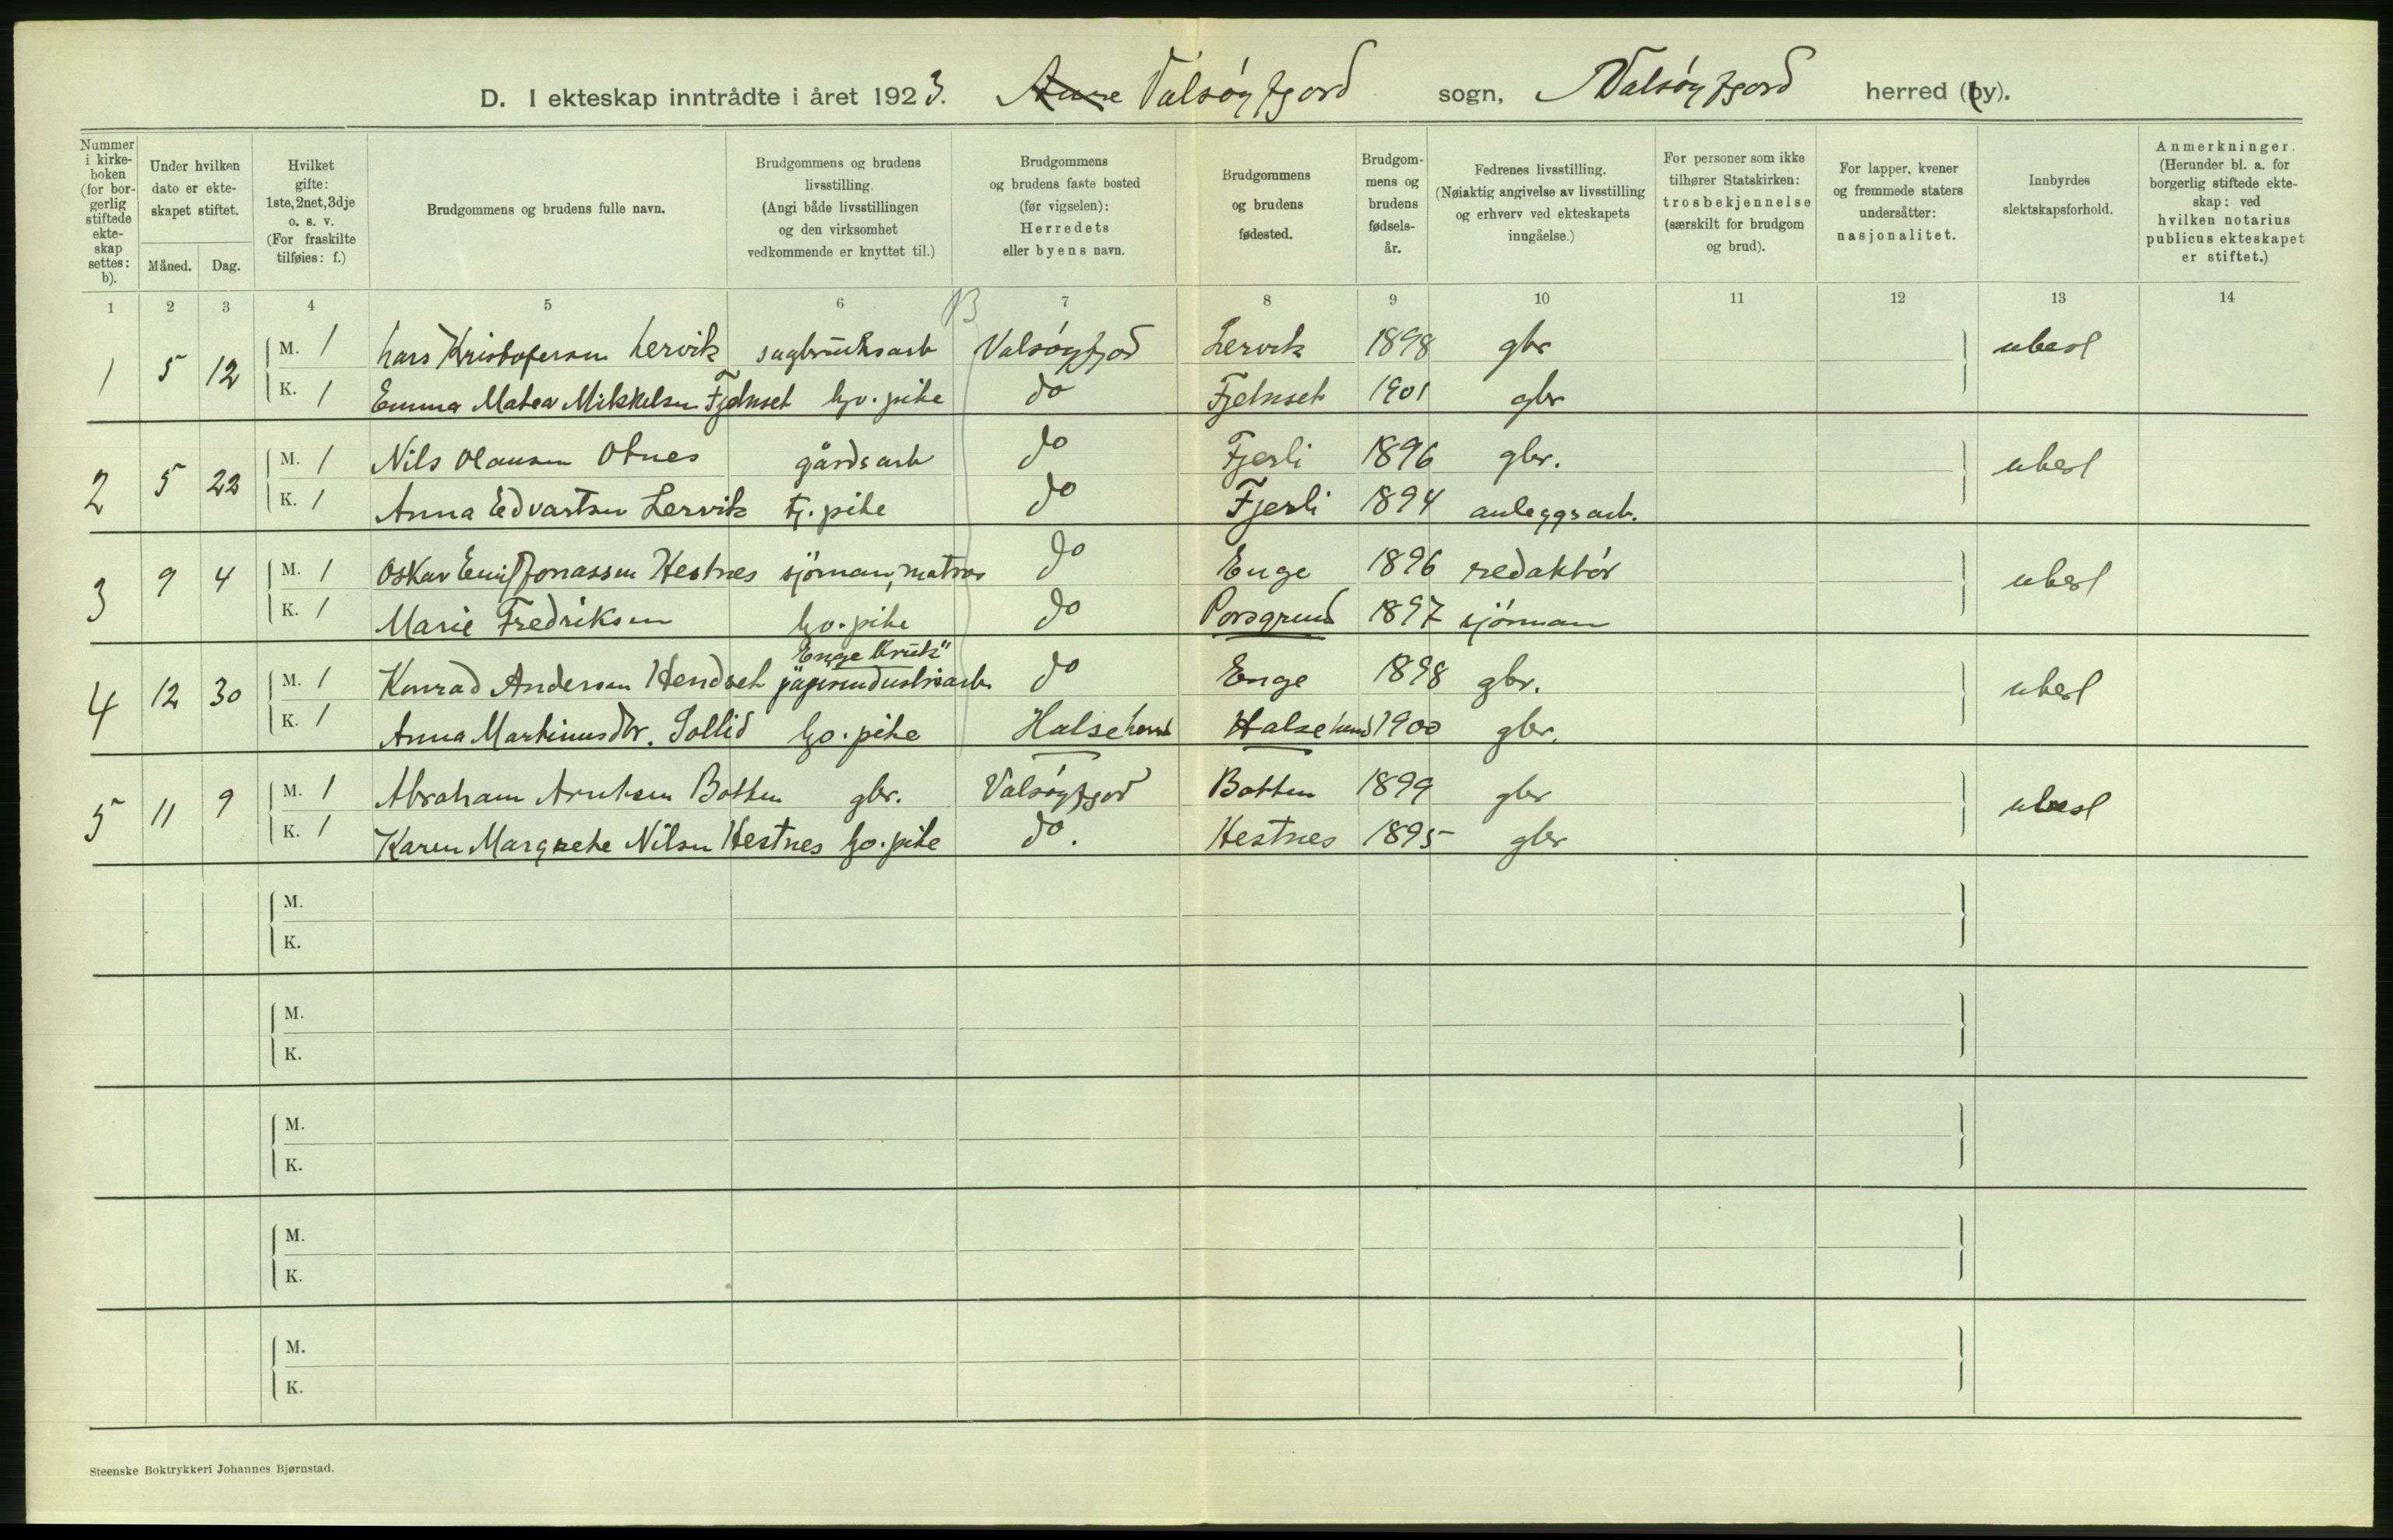 D. I ekteskap inntrådte i året 1923. Aure Valsøyfjord sogn, Valsøyfjord herred (by).
Nummer i kirke- boken (for bor- gerlig stiftede ekte- skap settes: b).
Under hvilken dato er ekte- skapet stiftet.
Måned. Dag.
Hvilket gifte: 1ste, 2net, 3dje o. s. v. (For fraskilte tilføies: f.)
Brudgommens og brudens fulle navn.
Brudgommens og brudens livsstilling. (Angi både livsstillingen og den virksomhet vedkommende er knyttet til.)
Brudgommens og brudens faste bosted (før vigselen): Herredets eller byens navn.
Brudgommens og brudens fødested.
Brudgom- mens og brudens fødsels- år.
Fedrenes livsstilling. (Nøiaktig angivelse av livsstilling og erhverv ved ekteskapets inngåelse.)
For personer som ikke tilhører Statskirken: trosbekjennelse (særskilt for brudgom og brud).
For lapper, kvener og fremmede staters undersåtter: nasjonalitet.
Innbyrdes slektskapsforhold.
Anmerkninger. (Herunder bl. a. for borgerlig stiftede ekte- skap: ved hvilken notarius publicus ekteskapet er stiftet.)
1 2 3 4 5 6 7 8 9 10 11 12 13 14
1 5 12 M. 1 Lars Kristofersen Lervik sagbruksarb Valsøyfjod Lervik 1898 gbr ubesl
K. 1 Emma Matea Mikkelsen Fjelnset hjv. pike do Fjelnset 1901 gbr
2 5 22 M. 1 Nils Olausen Otnes gårdsarb do Fjerli 1896 gbr. ubesl
K. 1 Anna Edvartsen Lervik tj. pike do Fjerli 1894 anleggsarb.
3 9 4 M. 1 Oskar Emil Jonassen Hestnes sjöman, matros do Enge 1896 redaktör ubesl
K. 1 Marie Fredriksen hjv. pike do Porsgrund 1897 sjömann
Enge bruk"
4 12 30 M. 1 Konrad Andersen Hendset papirindustriarb do Enge 1898 gbr. ubesl
K. 1 Anna Martinusdtr. Sollid hjv. pike Halse herred Halse herred 1900 gbr.
5 11 9 M. 1 Abraham Arntsen Botten gbr. Valsøyfjord Botten 1899 gbr ubesl
K. 1 Karen Margrethe Nilsen Hestnes hjv. pike do. Hestnes 1895 gbr
M.
K.
M.
K.
M.
K.
M.
K.
M.
K.
Steenske Boktrykkeri Johannes Bjørnstad.